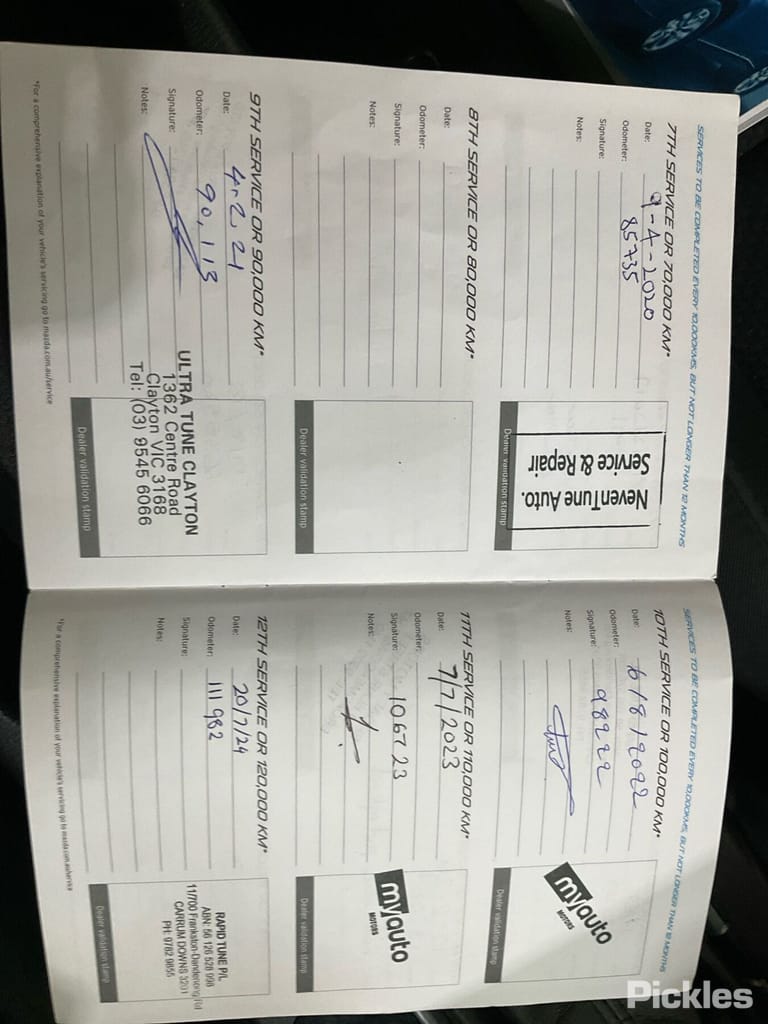 SERVICES TO BE COMPLETED EVERY 10,000KMS, BUT NOT LONGER THAN 12 MONTHS
7TH SERVICE OR 70,000 KM*
Date: 9-4-2020
Odometer: 85735
Signature:
Notes:
NevenTune Auto.
Service & Repair
Dealer validation stamp
8TH SERVICE OR 80,000 KM*
Date:
Odometer:
Signature:
Notes:
Dealer validation stamp
9TH SERVICE OR 90,000 KM*
Date: 4.2.21
Odometer: 90,113
Signature:
Notes:
ULTRA TUNE CLAYTON
1362 Centre Road
Clayton VIC 3168
Tel: (03) 9545 6066
Dealer validation stamp
*For a comprehensive explanation of your vehicle's servicing go to mazda.com.au/service
SERVICES TO BE COMPLETED EVERY 10,000KMS, BUT NOT LONGER THAN 12 MONTHS
10TH SERVICE OR 100,000 KM*
Date: 6/8/2022
Odometer: 98222
Signature:
Notes:
myauto
MOTORS
Dealer validation stamp
11TH SERVICE OR 110,000 KM*
Date: 7/7/2023
Odometer:
Signature: 106723
Notes:
myauto
MOTORS
Dealer validation stamp
12TH SERVICE OR 120,000 KM*
Date: 20/7/24
Odometer: 111982
Signature:
Notes:
RAPID TUNE P/L
ABN: 56 126 528 998
11/700 Frankston-Dandenong Rd
CARRUM DOWNS 3201
PH: 9782 9855
Dealer validation stamp
*For a comprehensive explanation of your vehicle's servicing go to mazda.com.au/service
Pickles